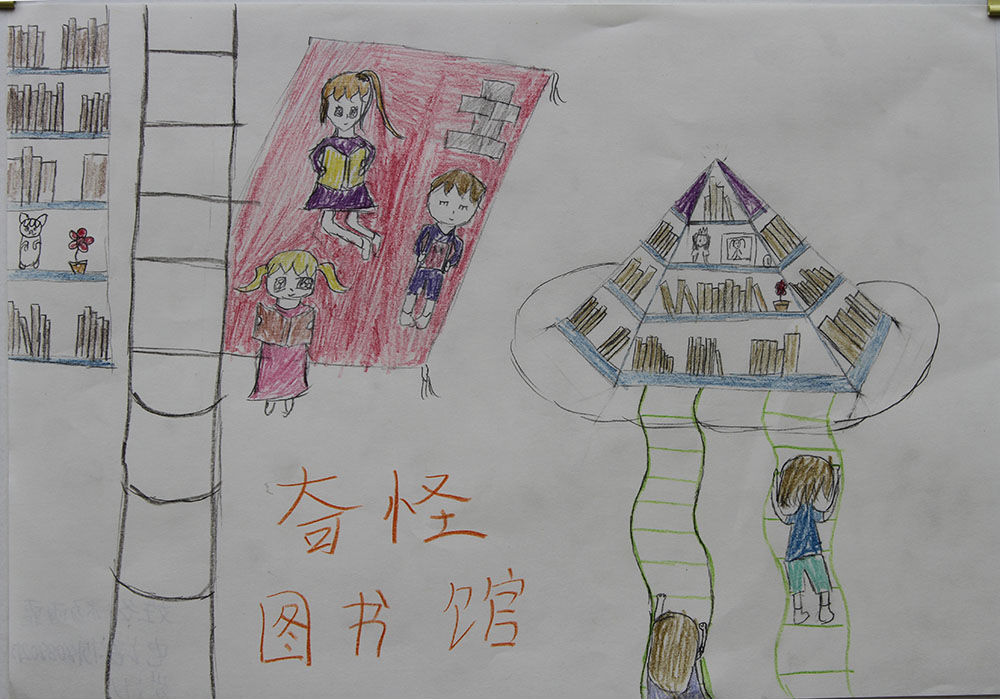 奇怪
图书馆